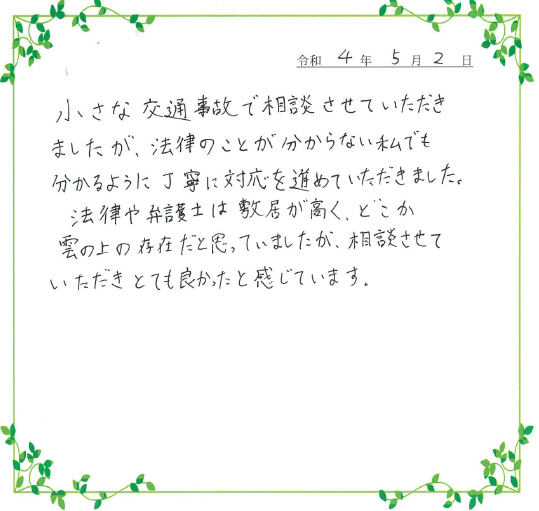 令和 4 年 5 月 2 日
小さな交通事故で相談させていただき
ましたが、法律のことが分からない私でも
分かるように丁寧に対応を進めていただきました。
法律や弁護士は敷居が高く、どこか
雲の上の存在だと思っていましたが、相談させて
いただきとても良かったと感じています。